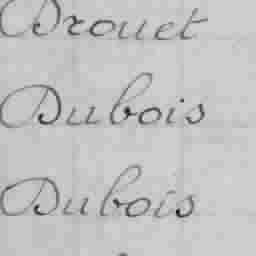 Drouet
Dubois
Dubois